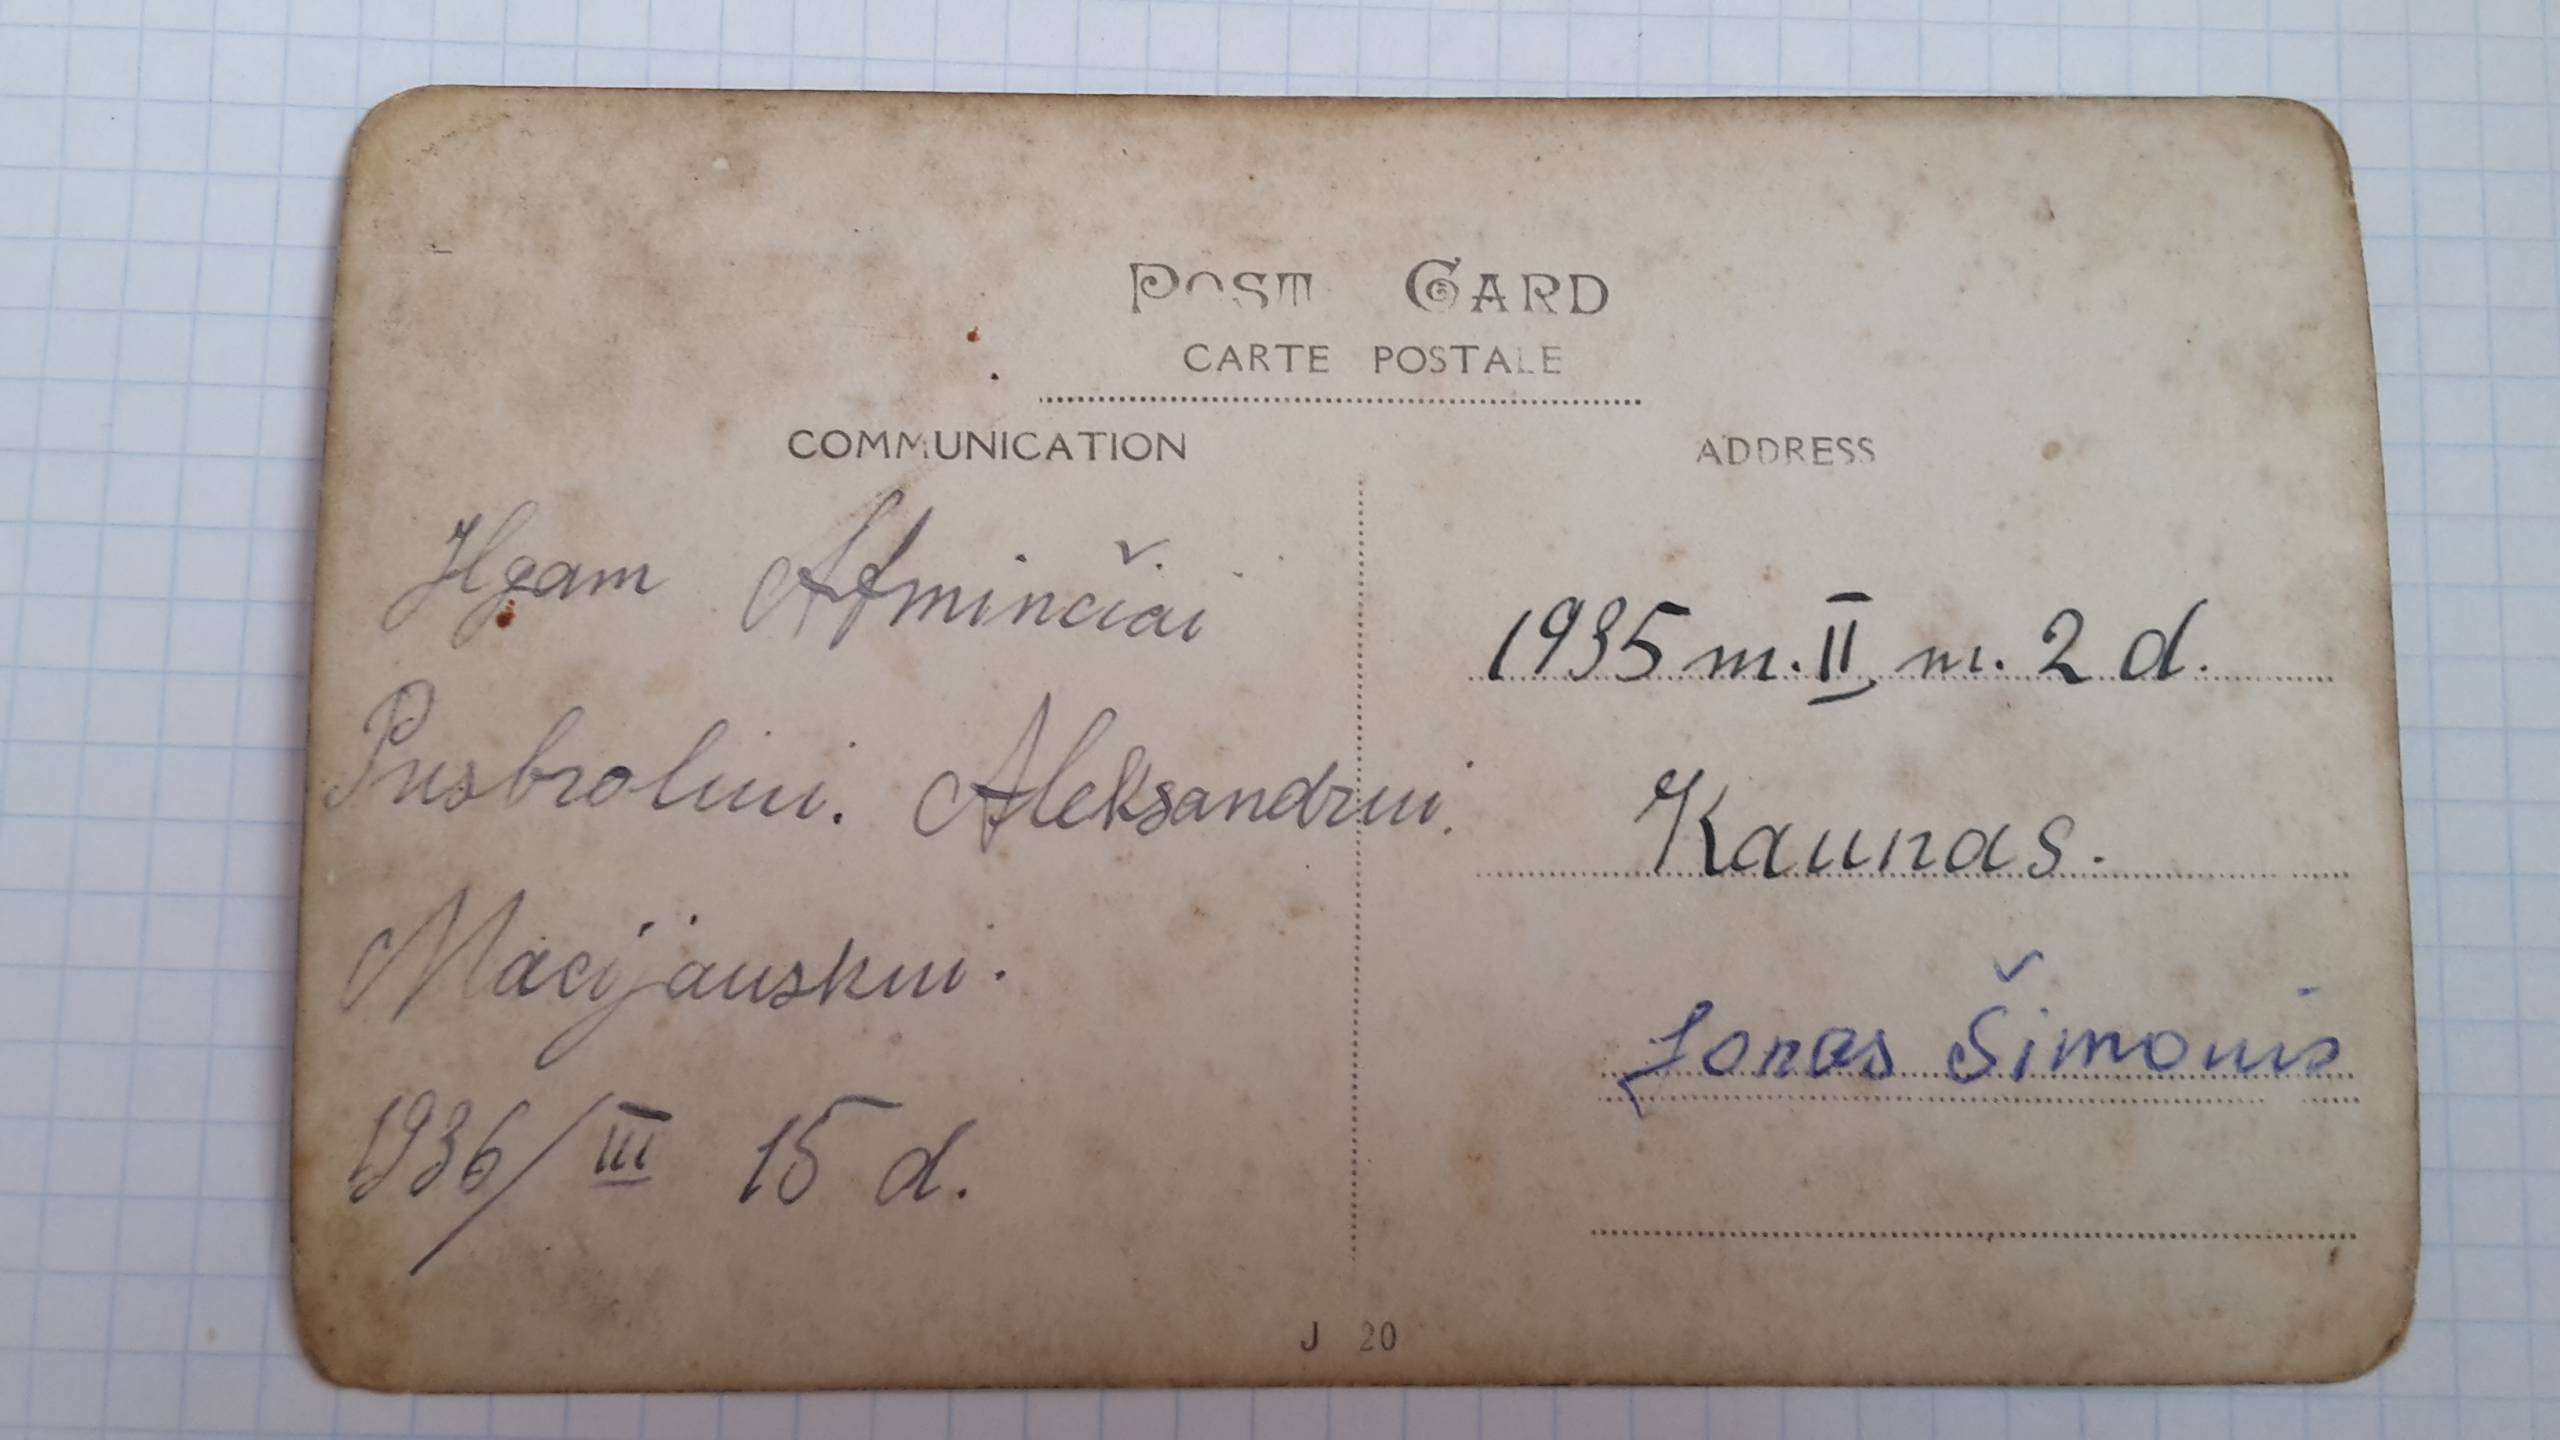 POST CARD
CARTE POSTALE
COMMUNICATION
Ilgam Atminčiai
Pusbroliui. Aleksandrui.
Macijauskui.
1936/III 15 d.
ADDRESS
1935 m. II m. 2 d.
Kaunas.
Jonas Šimonis
J 20